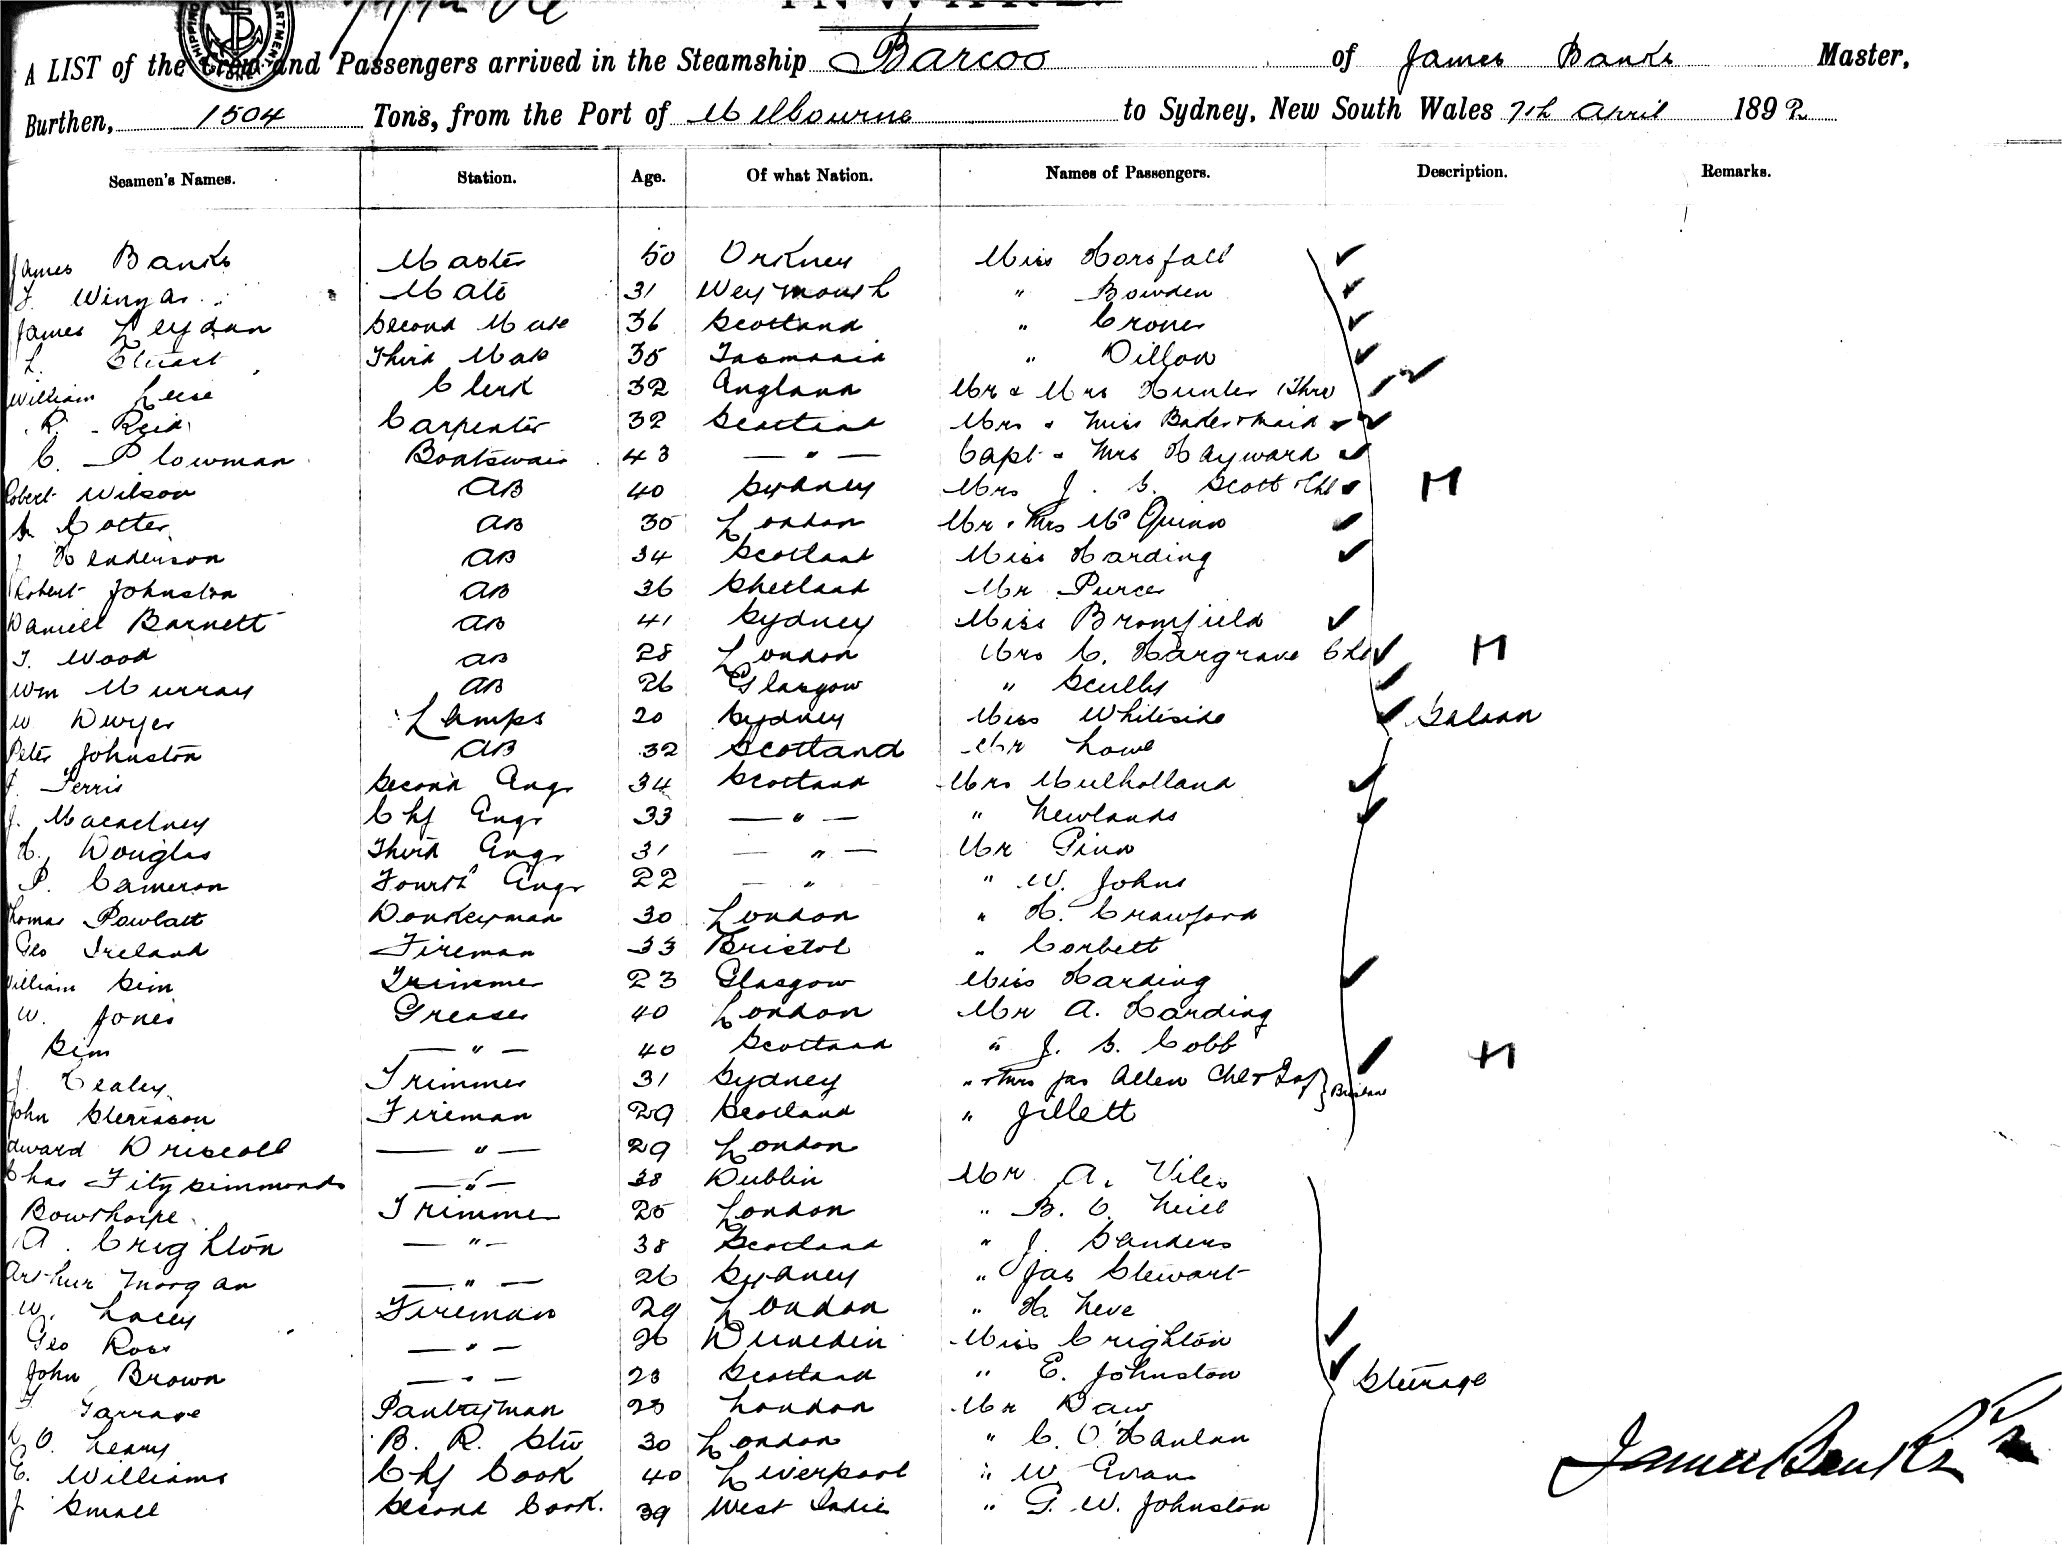 INWARD.
A LIST of the Crew and Passengers arrived in the Steamship Barcoo of James Banks Master,
Burthen, 1504 Tons, from the Port of Melbourne to Sydney, New South Wales 7th April 1892
Seamen's Names. Station. Age. Of what Nation. Names of Passengers. Description. Remarks.
James Banks Master 50 Orkney Miss Horsfall
Mate 31 Weymouth " Bowden
James Leydon Second Mate 36 Scotland " Croner
L. Stuart Third Mate 35 Tasmania " Dillon
William Leese Clerk 32 England Mr & Mrs Hunter
R. Reid Carpenter 32 Scotland Mrs & Miss Bader & Maid
C. Plowman Boatswain 43 — " — Capt & Mrs Hayward
Robert Wilson AB 40 Sydney Mrs J. S. Scott & Chd H
Cotter AB 35 London Mr & Mrs McQuinn
Henderson AB 34 Scotland Miss Harding
Robert Johnston AB 36 Shetland Mr
Daniell Barnett AB 41 Sydney Miss Bromfield
T. Wood AB 28 London Mrs C. Hargrave H
Wm Murray AB 26 Glasgow " Scully
W Dwyer Lamps 20 Sydney Miss Whiteside Saloon
Peter Johnston AB 32 Scotland Mr Lowe
Ferris Second Engr 34 Scotland Mrs Mulholland
J. Macartney Chf Engr 33 — " — " Newlands
H. Douglas Third Engr 31 — " — Mr Ginn
P. Cameron Fourth Engr 22 — " " W. Johns
Thomas Powlatt Donkeyman 30 London " H. Crawford
Geo Ireland Fireman 33 Bristol " Corbett
William Sim Trimmer 23 Glasgow Miss Harding
W. Jones Greaser 40 London Mr A. Harding
Sim — " — 40 Scotland " J. S. Cobb H
J. Trimmer 31 Sydney " & Mrs Jas Allen
John Fireman 29 Scotland " Jillett
Edward Driscoll — " — 29 London
Chas Fitzsimmonds — " — 38 Dublin Mr A. Viles
Bowthorpe Trimmer 25 London " B. C. Neill
A. Crighton — " — 38 Scotland " J. Sanders
Arthur Morgan — " — 26 Sydney " Jas Stewart
W. Lacey Fireman 29 London " H. Neve
Geo Ross — " — 26 Dunedin Miss Crighton
John Brown — " — 23 Scotland " E. Johnston Steerage
Tarrane Pantryman 23 London Mr Daw
O. Leary B. R. Stw 30 London " C. O'Hanlan
E. Williams Chf Cook 40 Liverpool " W. Evans
J Small Second Cook. 39 West Indies " G. W. Johnston
James Banks